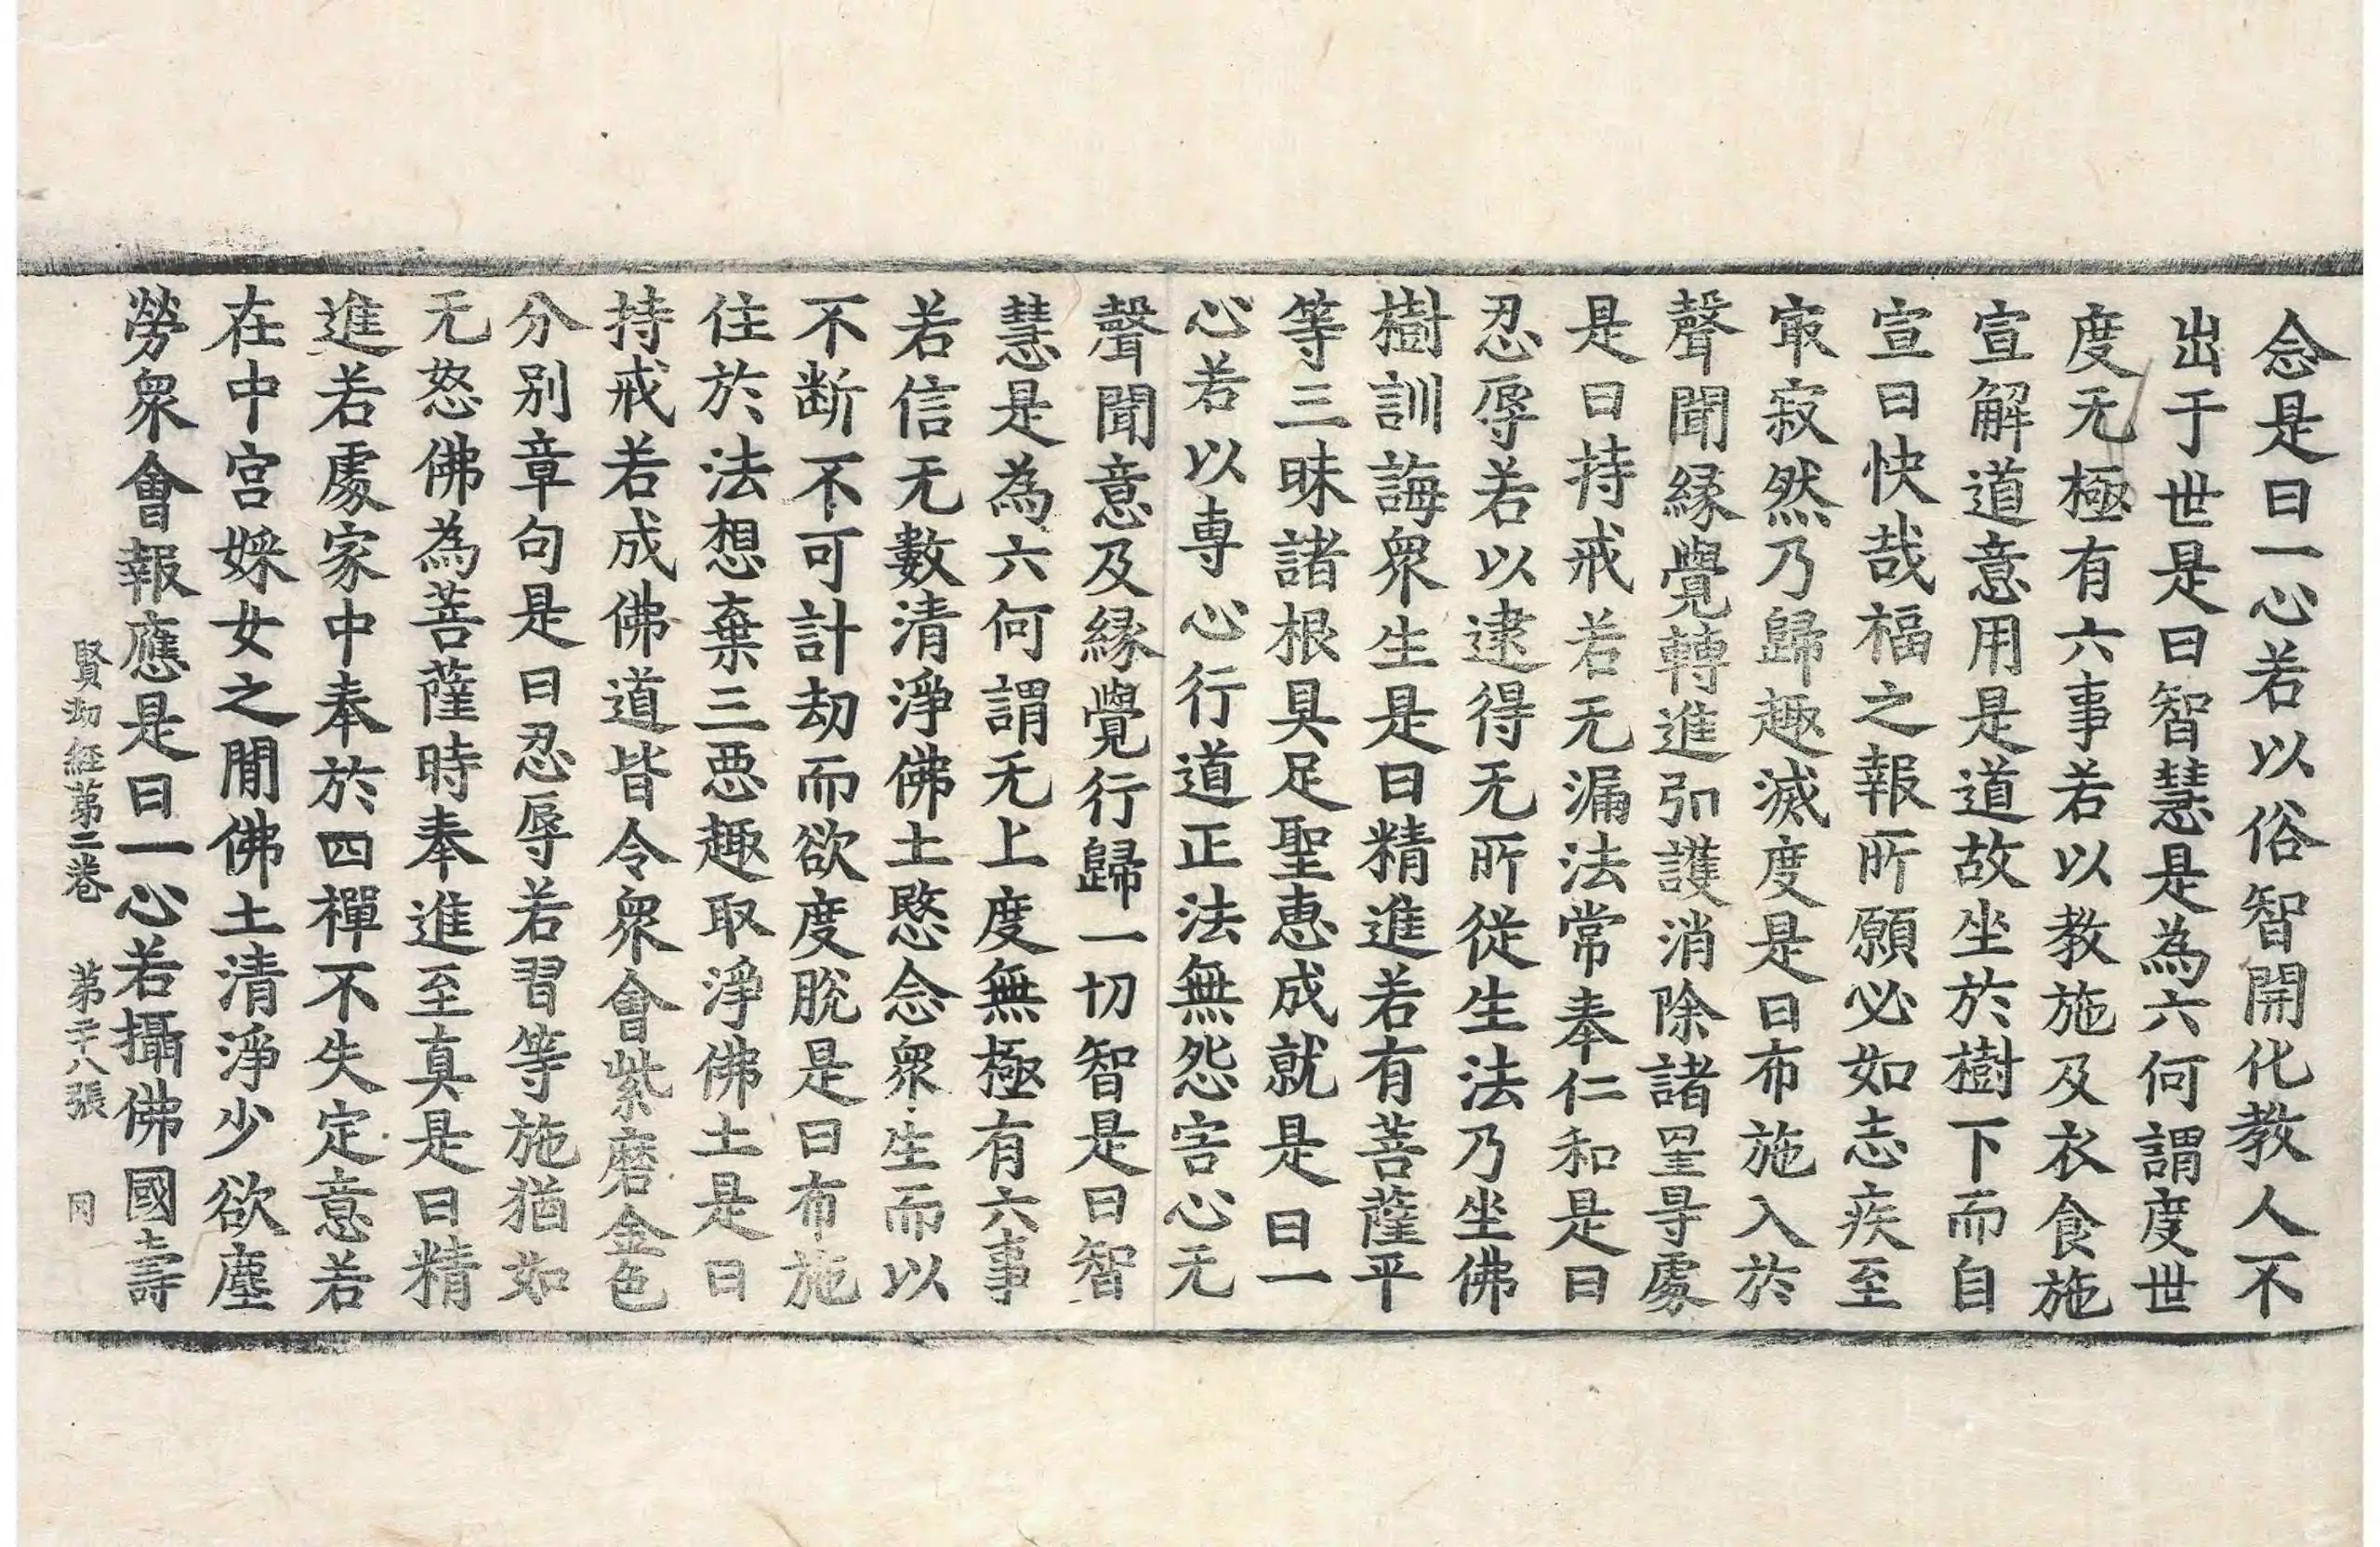 念是曰一心若以俗智開化教人不
出于世是曰智慧是為六何謂度世
度无極有六事若以教施及衣食施
宣解道意用是道故坐於樹下而自
宣曰快哉福之報所願必如志疾至
㝡寂然乃歸趣滅度是曰布施入於
聲聞緣覺轉進引護消除諸罣㝵處
是曰持戒若无漏法常奉仁和是曰
忍辱若以逮得无所從生法乃坐佛
樹訓誨衆生是曰精進若有菩薩平
等三昧諸根具足聖惠成就是曰一
心若以專心行道正法無怨害心无
聲聞意及緣覺行歸一切智是曰智
慧是為六何謂无上度無極有六事
若信无數清淨佛土愍念衆生而以
不断不可計劫而欲度脫是曰布施
住於法想棄三惡趣取淨佛土是曰
持戒若成佛道皆令衆會紫磨金色
分别章句是曰忍辱若習等施猶如
无怒佛為菩薩時奉進至真是曰精
進若處家中奉於四禪不失定意若
在中宮婇女之間佛土清淨少欲塵
勞衆會報應是曰一心若攝佛國壽
賢劫經第二卷　第二十八張　同